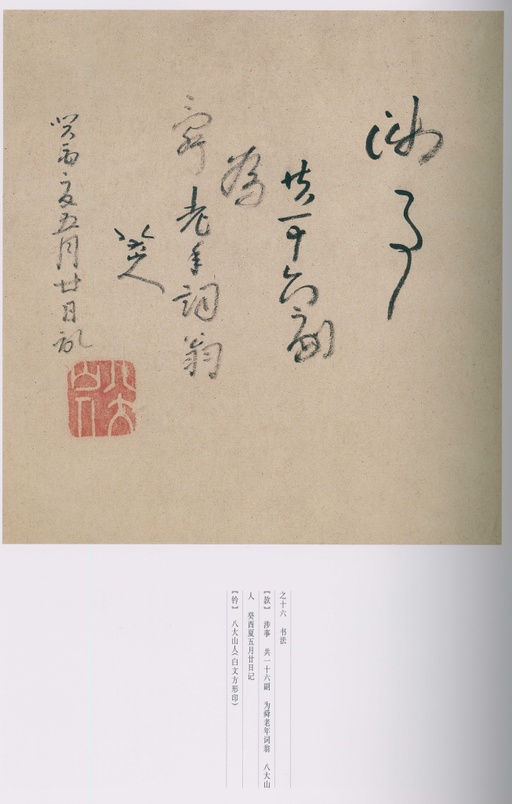 涉事
共一十六副
為
舜老年詞翁
八大山人
癸酉夏五月廿日記
八大山人
之十六 书法
【款】 涉事 共一十六副 为舜老年词翁 八大山
人 癸酉夏五月廿日记
【钤】 八大山人（白文方形印）